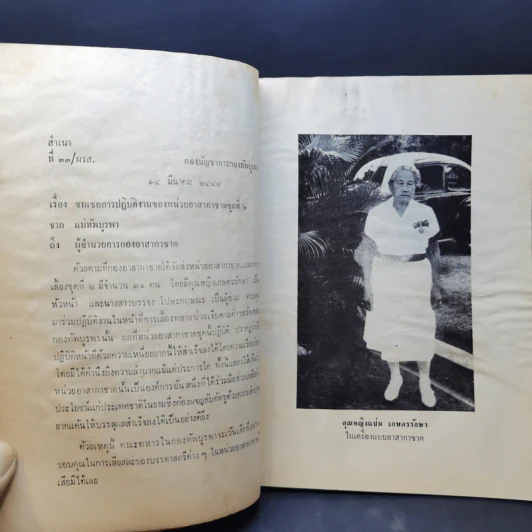 สำเนา
ที่ ๓๓/ผรส. กองบัญชาการกองทัพบูรพา
๑๔ มีนาคม ๒๔๘๔
เรื่อง ชมเชยการปฏิบัติงานของหน่วยอาสากาชาดชุดที่ ๒
จาก แม่ทัพบูรพา
ถึง ผู้อำนวยการกองอาสากาชาด
ด้วยตามที่กองอาสากาชาดได้จัดส่งหน่วยอาสากาชาด
เลี้ยงชุดที่ ๒ มีจำนวน ๒๑ คน โดยมีคุณหญิงเกษตรรักษา เป็น
หัวหน้า และนางสาวบรรจง โปษะกฤษณะ เป็นผู้ช่วย
มาร่วมปฏิบัติงานในหน้าที่การเลี้ยงทหารป่วยเจ็บ
กองทัพบูรพานั้น ผลที่หน่วยอาสากาชาดชุดนี้ปฏิบัติ
ปฏิบัติหน้าที่ด้วยความเหนื่อยยากให้สำเร็จลงได้โดย
โดยมิได้คำนึงถึงความลำบากแม้แต่ประการใด
หน่วยอาสากาชาดนั้นเป็นองค์การอันหนึ่งที่ได้ร่วมมือช่วย
ประโยชน์แก่ประเทศชาติในยามซึ่งต้องผจญกับศัตรูด้วยความ
ยากแค้นให้บรรลุผลสำเร็จลงได้เป็นอย่างดียิ่ง
ด้วยเหตุนี้ คณะทหารในกองทัพบูรพาจะเว้นเสียซึ่ง
ขอบคุณในการเสียสละของบรรดาสตรีต่าง ๆ ในหน่วยอาสากาชาด
เสียมิได้เลย
คุณหญิงแช่ม เกษตรรักษา
ในเครื่องแบบอาสากาชาด